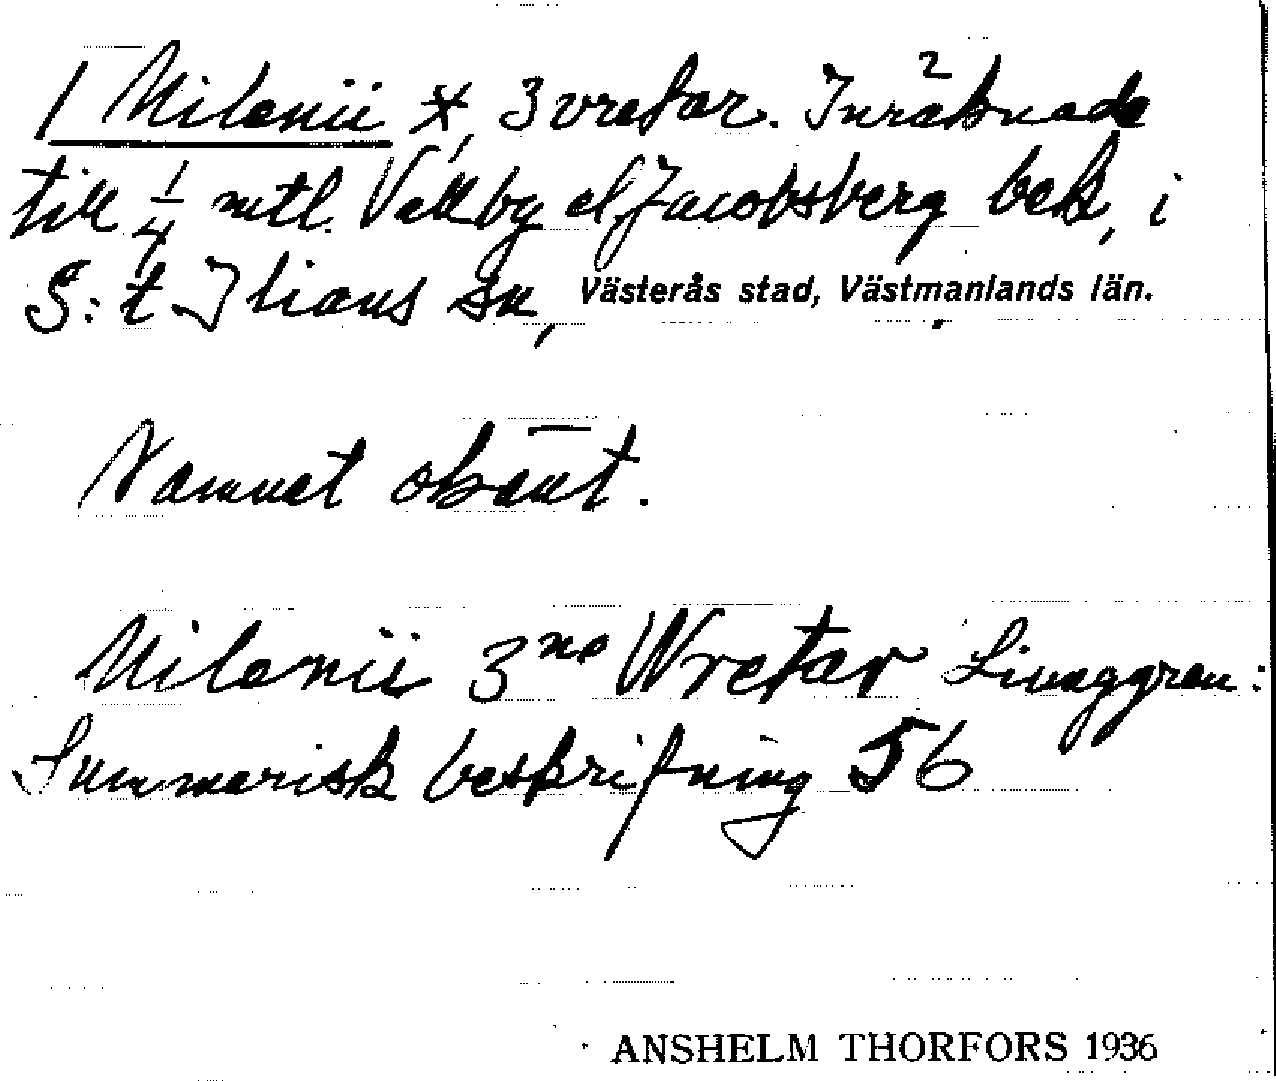 1 Milenii *, 3 vretar. Inräknade
till 1/4 mtl. Vallby el Jacobsberg beb, i
S:t Ilians sn, Västerås stad, Västmanlands län.
Namnet okänt.
Milenii 3ne Wretar Liunggren:
Summarisk beskrifning 56
ANSHELM THORFORS 1936